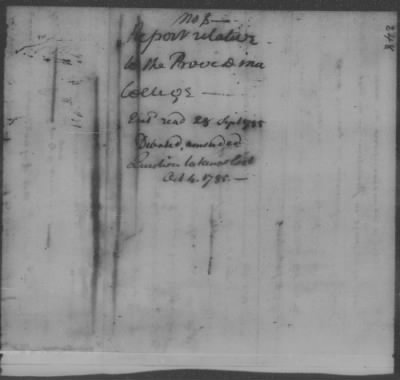 No 8—
Report relative
to the Providence
College —
Entd read 28 Sept 1785
Debated, amended
Question taken & lost
Oct 4. 1785.—